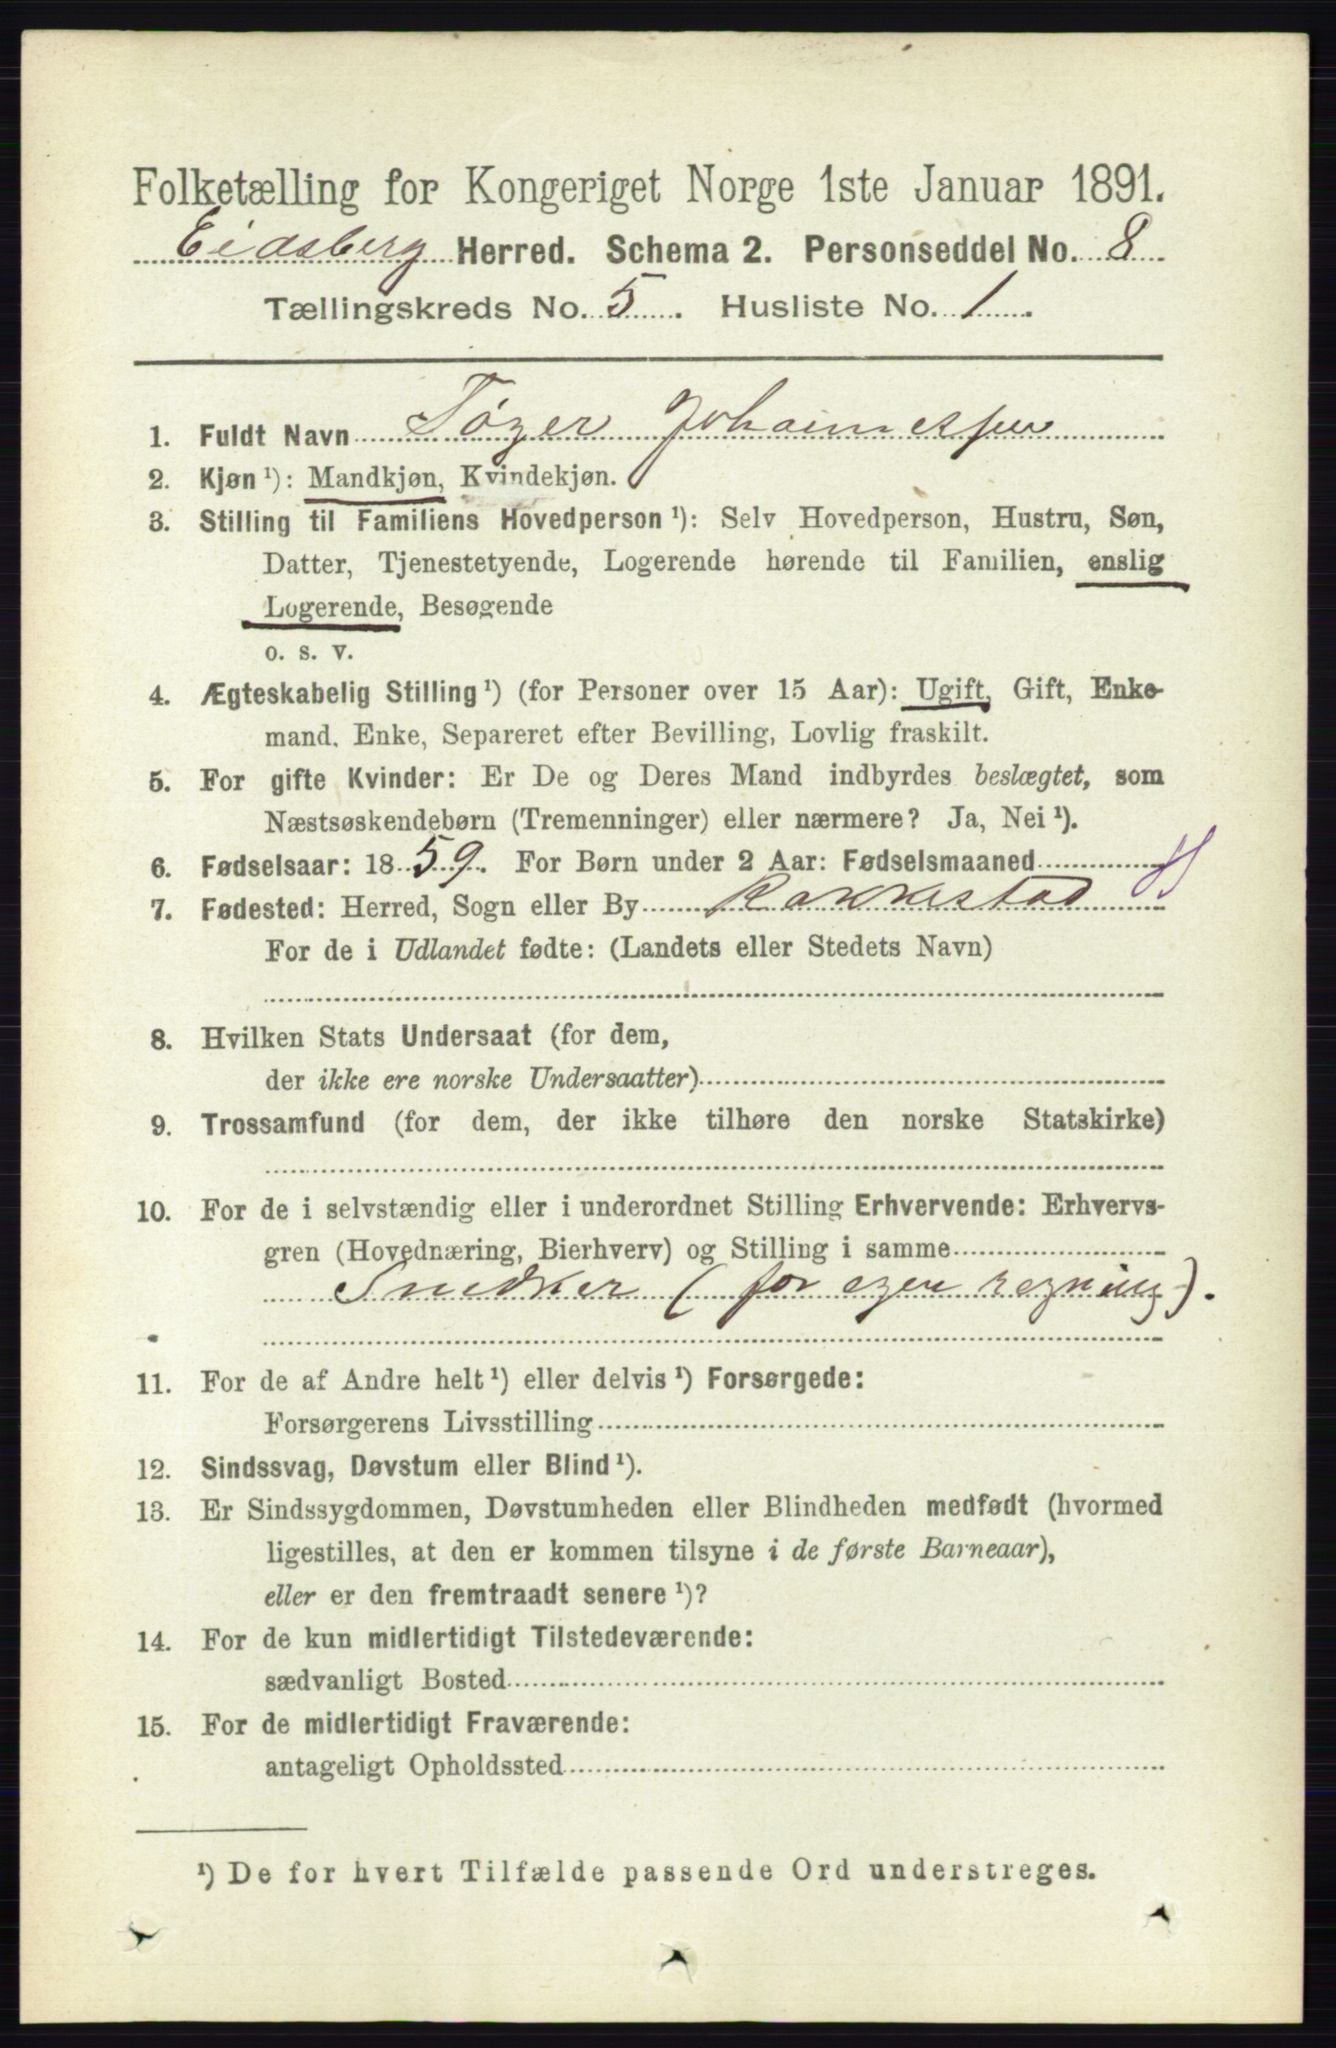 Folketælling for Kongeriget Norge 1ste Januar 1891.
Eidsberg Herred. Schema 2. Personseddel No. 8
Tællingskreds No. 5. Husliste No. 1.
1. Fuldt Navn Töger Johannessen
2. Kjøn ¹): Mandkjøn, Kvindekjøn.
3. Stilling til Familiens Hovedperson ¹): Selv Hovedperson, Hustru, Søn,
Datter, Tjenestetyende, Logerende hørende til Familien, enslig
Logerende, Besøgende
o. s. v.
4. Ægteskabelig Stilling ¹) (for Personer over 15 Aar): Ugift, Gift, Enke-
mand, Enke, Separeret efter Bevilling, Lovlig fraskilt.
5. For gifte Kvinder: Er De og Deres Mand indbyrdes beslægtet, som
Næstsøskendebørn (Tremenninger) eller nærmere? Ja, Nei ¹).
6. Fødselsaar: 1859. For Børn under 2 Aar: Fødselsmaaned
7. Fødested: Herred, Sogn eller By Rakkestad
For de i Udlandet fødte: (Landets eller Stedets Navn)
8. Hvilken Stats Undersaat (for dem,
der ikke ere norske Undersaatter)
9. Trossamfund (for dem, der ikke tilhøre den norske Statskirke)
10. For de i selvstændig eller i underordnet Stilling Erhvervende: Erhvervs-
gren (Hovednæring, Bierhverv) og Stilling i samme
Snedker (for egen regning).
11. For de af Andre helt ¹) eller delvis ¹) Forsørgede:
Forsørgerens Livsstilling
12. Sindssvag, Døvstum eller Blind ¹).
13. Er Sindssygdommen, Døvstumheden eller Blindheden medfødt (hvormed
ligestilles, at den er kommen tilsyne i de første Barneaar),
eller er den fremtraadt senere ¹)?
14. For de kun midlertidigt Tilstedeværende:
sædvanligt Bosted
15. For de midlertidigt Fraværende:
antageligt Opholdssted
¹) De for hvert Tilfælde passende Ord understreges.